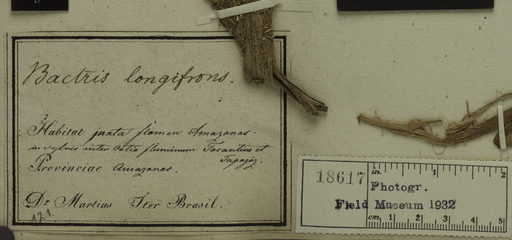 Bactris longifrons.
Habitat juxta flumen Amazonas
in sylvis inter ostia fluminum Tocantins et
Tapajoz.
Provinciae Amazonas.
Dr Martius Iter Brasil.
18617
Photogr.
Field Museum 1932
in.
1
2
cm
1
2
3
4
5